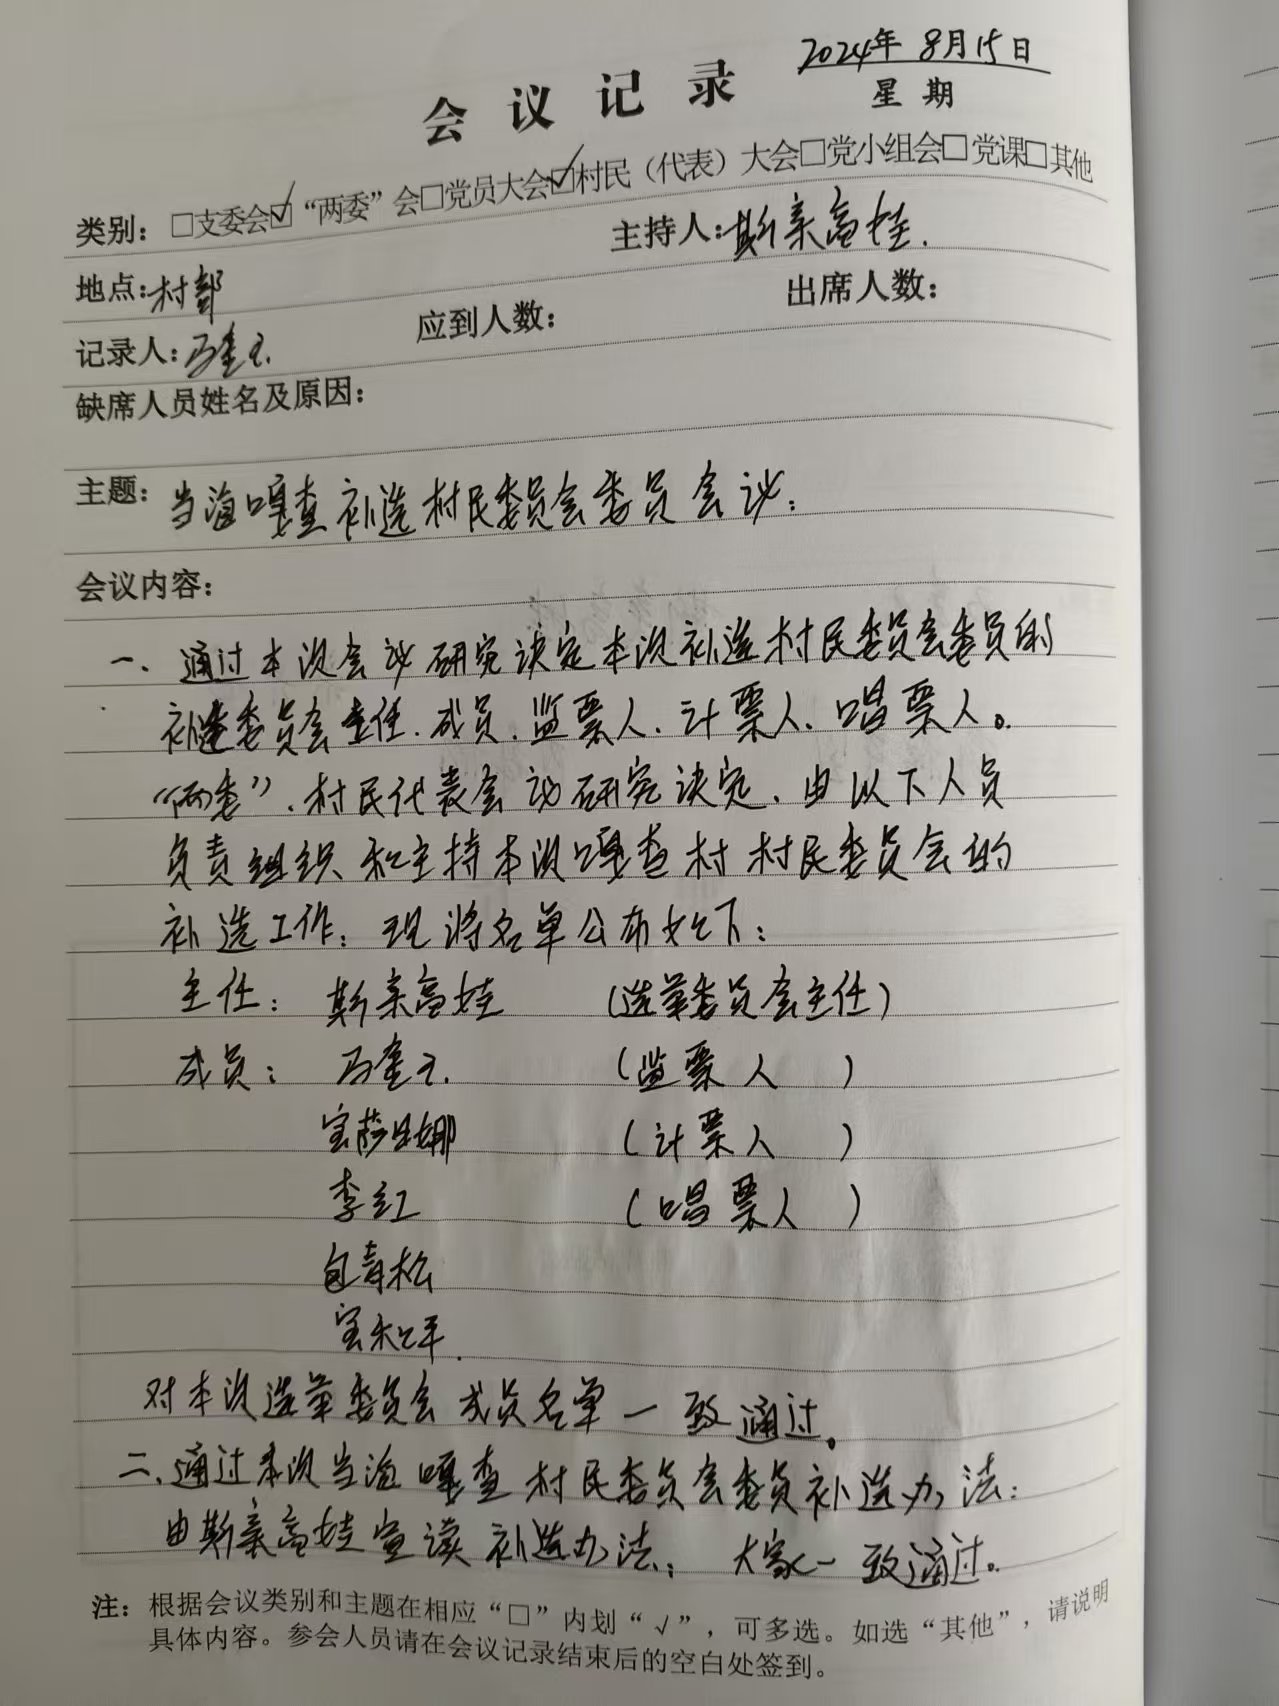 2024年8月15日
会议记录
星期
类别：□支委会☑“两委”会□党员大会☑村民（代表）大会□党小组会□党课□其他
地点：村部 主持人：斯琴高娃.
记录人：马奎玉. 应到人数： 出席人数：
缺席人员姓名及原因：
主题：当海嘎查补选村民委员会委员会议：
会议内容：
一、通过本次会议研究决定本次补选村民委员会委员的
补选委员会主任.成员.监票人.计票人.唱票人。
“两委”.村民代表会议研究决定.由以下人员
负责组织和主持本次嘎查村村民委员会的
补选工作：现将名单公布如下：
主任：斯琴高娃 （选举委员会主任）
成员：马奎玉. （监票人）
宝莎日娜 （计票人）
李红 （唱票人）
包青松
宝和平.
对本次选举委员会成员名单一致通过。
二、通过本次当海嘎查村民委员会委员补选办法：
由斯琴高娃宣读补选办法； 大家一致通过。
注：根据会议类别和主题在相应“□”内划“√”，可多选。如选“其他”，请说明
具体内容。参会人员请在会议记录结束后的空白处签到。